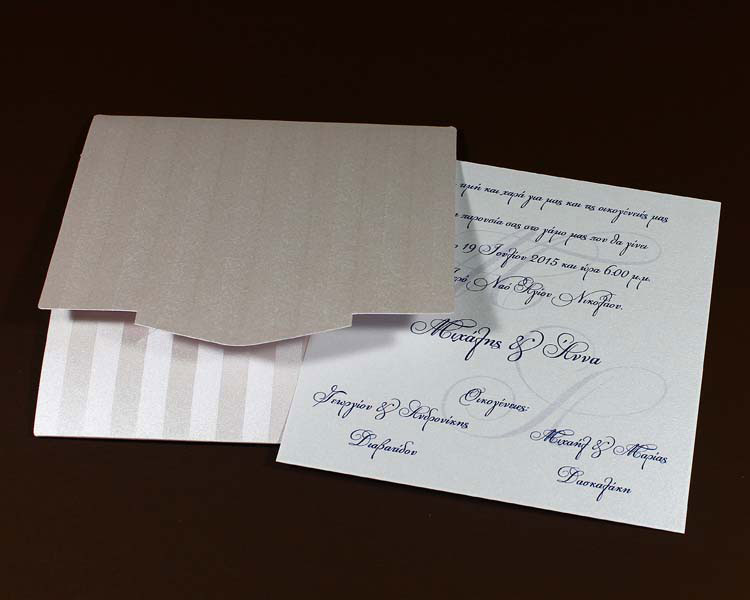 τιμή και χαρά για μας και τις οικογένειές μας
παρουσία σας στο γάμο μας που θα γίνει
19 Ιουλίου 2015 και ώρα 6:00 μ.μ.
Ναό Αγίου Νικολάου.
Μιχάλης & Άννα
Οικογένειες:
Γεωργίου & Ανδρονίκης
Διαβαίδου
Μιχαήλ & Μαρίας
Δασκαλάκη